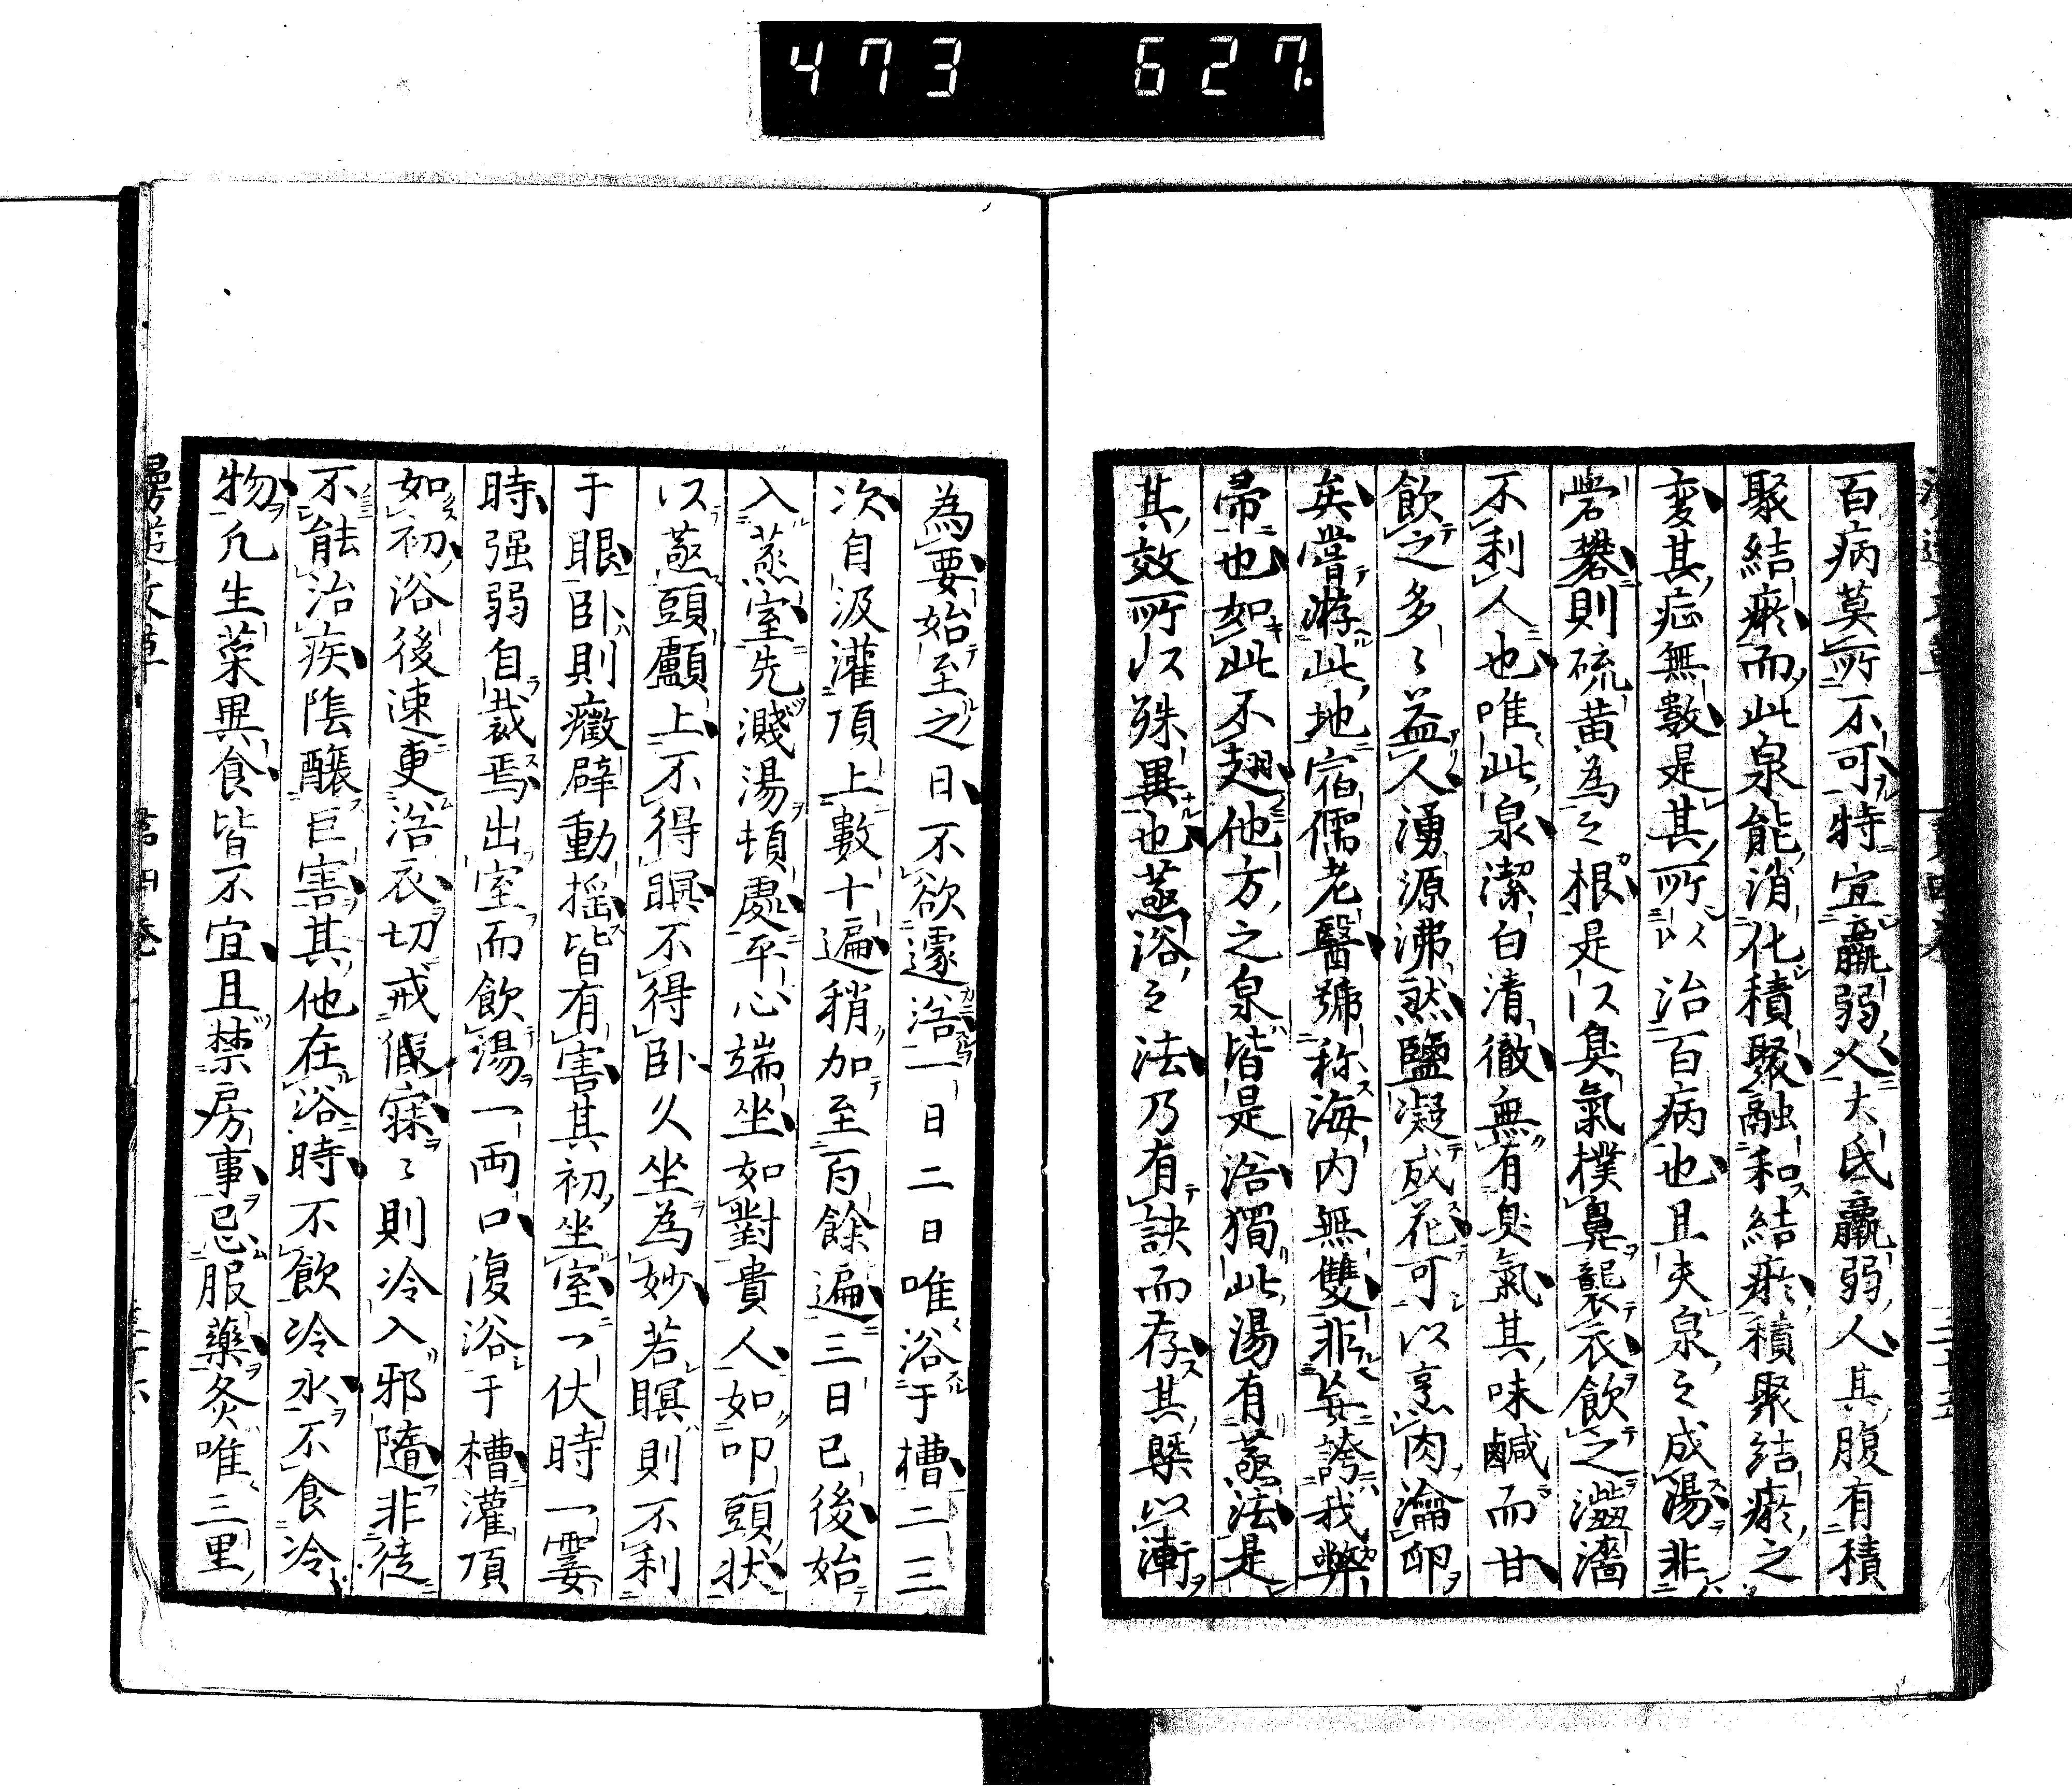 473 627.
百病莫所不可特宜羸弱人大氐羸弱人其腹有積
聚結瘀而此泉能消化積聚融和結瘀積聚結瘀之
変其症無數是其所以治百病也且夫泉之成湯非
礜礬則硫黄為之根是以臭氣撲鼻襲衣飲之澀濇
不利人也唯此泉潔白清徹無有臭氣其味鹹而甘
飲之多々益人湧源沸然鹽凝成花可以烹肉瀹卵
矣嘗游此地宿儒老醫號称海内無雙非妄誇我弊
帚也如此不趐他方之泉皆是浴獨此湯有蒸法是
其效所以殊異也蒸浴之法乃有訣而存其槩以漸
為要始至之日不欲遽浴一日二日唯浴于槽二三
次自汲灌頂上數十遍稍加至百餘遍三日已後始
入蒸室先濺湯頓處平心端坐如對貴人如叩頭状
以蒸頭顱上不得瞑不得卧久坐為妙若瞑則不利
于眼卧則癥癖動揺皆有害其初坐室一伏時一霎
時强弱自裁焉出室而飲湯一両口復浴于槽灌頂
如初浴後速更浴衣切戒假寐々則冷入邪隨非徒
不能治疾陰釀巨害其他在浴時不飲冷水不食冷
物凢生菜異食皆不宜且禁房事忌服藥灸唯三里
漫遊文草 第四巻